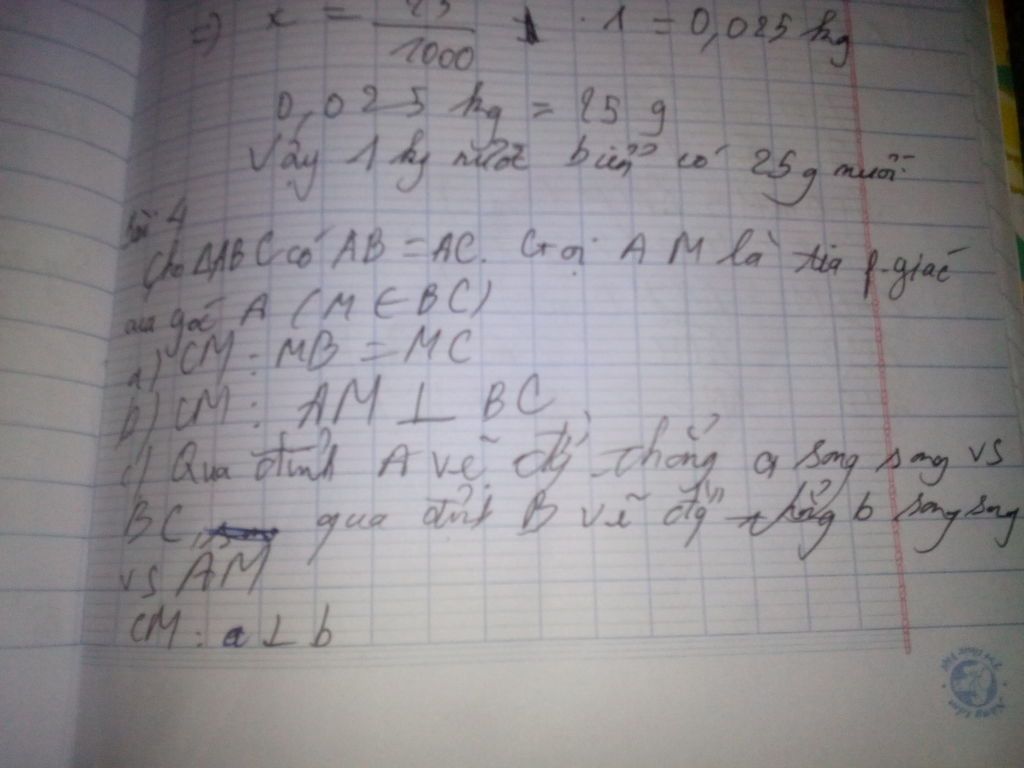 => x = 25/1000 . 1 = 0,025 kg
0,025 kg = 25 g
Vậy 1 kg nước biển có 25g muối
Bài 4
Cho ΔABC có AB = AC. Gọi AM là tia p.giác
của góc A (M ∈ BC)
a) CM : MB = MC
b) CM : AM ⊥ BC
c) Qua đỉnh A vẽ đg thẳng a song song vs
BC, qua đỉnh B vẽ đg thẳng b song song
vs AM
CM : a ⊥ b